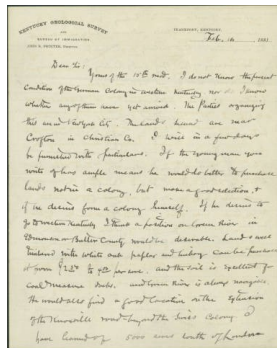 KENTUCKY GEOLOGICAL SURVEY
AND
BUREAU OF IMMIGRATION
JOHN R. PROCTER, Director
FRANKFORT, KENTUCKY,
Feb. 16 1881
Dear Sir
Yours of the 10th recd. I do not know the present
condition of the German Colony in western Kentucky nor do I know
whether any of them have yet arrived. The Parties organizing
this are in New York City. The lands are near
Crofton in Christian Co. I will in a few days
be furnished with particulars. If the young man you
write of has ample means he would do better to purchase
lands not in a colony, but make a good selection, &
if he desires form a colony himself. If he desires to
go to western Kentucky I think a position on Green River in
Edmonson or Butler County would be desirable. Land well
timbered with white oak poplar and hickory can be purchased
at from $2.50 to 4.00 per acre. and the soil is excellent for
Coal Measure lands. and Green River is always navigable.
He would also find a good location on the extension
of the Knoxville road beyond the Swiss Colony. I
have heard of 5000 acres south of London